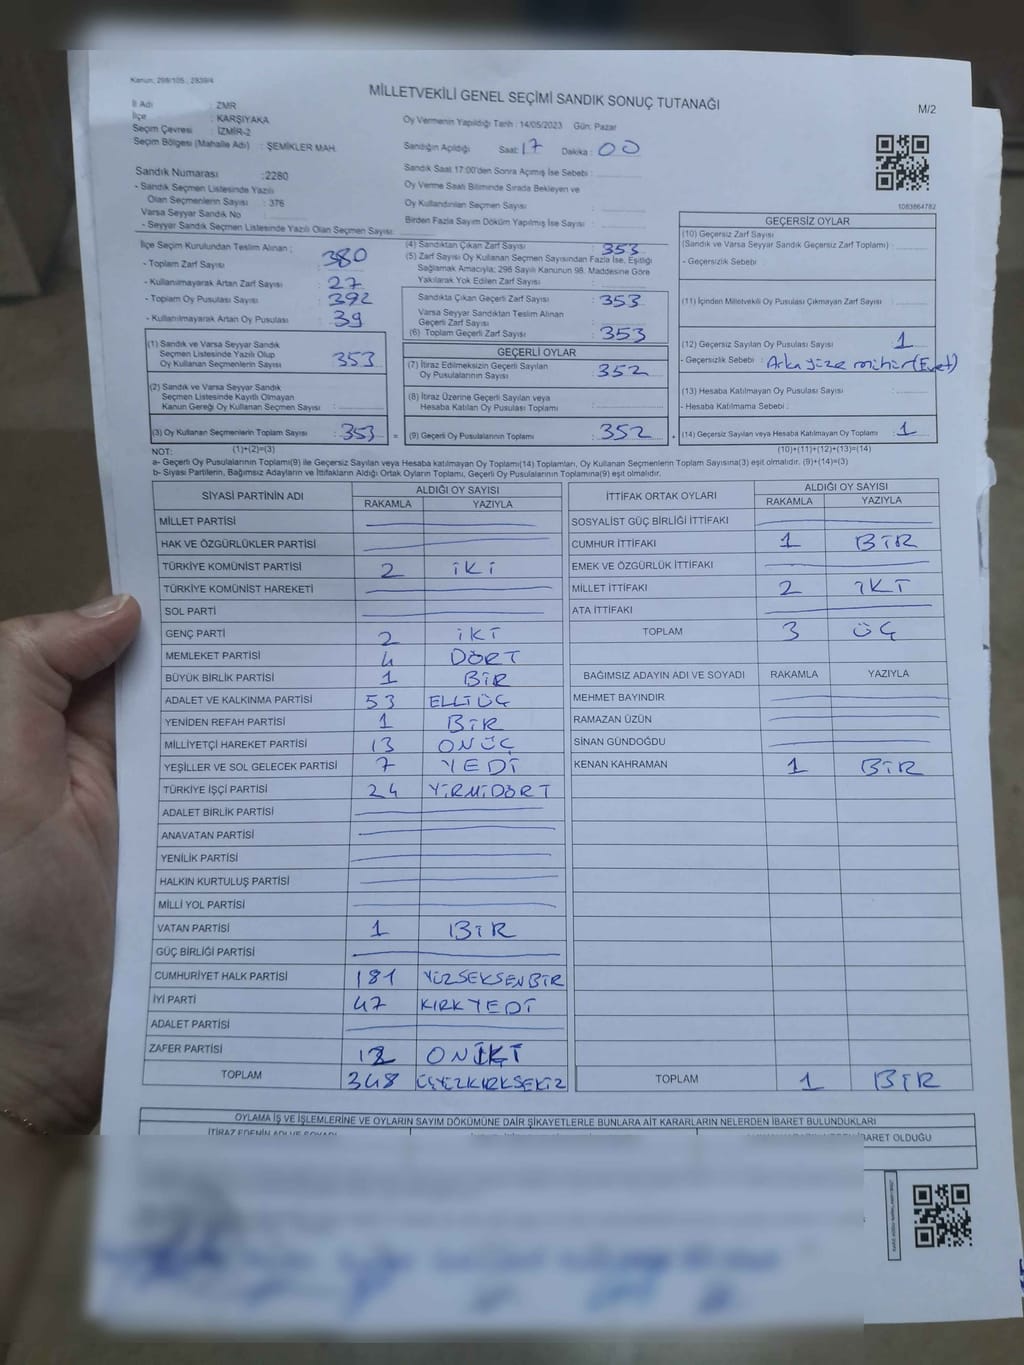 Kanun: 298/105 , 2839/4
MİLLETVEKİLİ GENEL SEÇİMİ SANDIK SONUÇ TUTANAĞI
M/2
İl Adı : ZMR
İlçe : KARŞIYAKA
Seçim Çevresi : İZMİR-2
Seçim Bölgesi (Mahalle Adı) : ŞEMİKLER MAH.
Oy Vermenin Yapıldığı Tarih : 14/05/2023 Gün: Pazar
Sandığın Açıldığı Saat: 17 Dakika: 00
Sandık Saat 17:00'den Sonra Açımış İse Sebebi :
Oy Verme Saati Bitiminde Sırada Bekleyen ve
Oy Kullandırılan Seçmen Sayısı :
Birden Fazla Sayım Döküm Yapılmış İse Sayısı :
Sandık Numarası :2280
- Sandık Seçmen Listesinde Yazılı
Olan Seçmenlerin Sayısı : 376
Varsa Seyyar Sandık No
- Seyyar Sandık Seçmen Listesinde Yazılı Olan Seçmen Sayısı:
1083864782
İlçe Seçim Kurulundan Teslim Alınan ;
- Toplam Zarf Sayısı : 380
- Kullanılmayarak Artan Zarf Sayısı : 27
- Toplam Oy Pusulası Sayısı : 392
- Kullanılmayarak Artan Oy Pusulası : 39
(1) Sandık ve Varsa Seyyar Sandık
Seçmen Listesinde Yazılı Olup
Oy Kullanan Seçmenlerin Sayısı : 353
(2) Sandık ve Varsa Seyyar Sandık
Seçmen Listesinde Kayıtlı Olmayan
Kanun Gereği Oy Kullanan Seçmen Sayısı :
(3) Oy Kullanan Seçmenlerin Toplam Sayısı : 353 =
(1)+(2)=(3)
(4) Sandıktan Çıkan Zarf Sayısı : 353
(5) Zarf Sayısı Oy Kullanan Seçmen Sayısından Fazla İse, Eşitliği
Sağlamak Amacıyla; 298 Sayılı Kanunun 98. Maddesine Göre
Yakılarak Yok Edilen Zarf Sayısı :
Sandıkta Çıkan Geçerli Zarf Sayısı : 353
Varsa Seyyar Sandıktan Teslim Alınan
Geçerli Zarf Sayısı :
(6) Toplam Geçerli Zarf Sayısı : 353
GEÇERLİ OYLAR
(7) İtiraz Edilmeksizin Geçerli Sayılan
Oy Pusulalarının Sayısı : 352
(8) İtiraz Üzerine Geçerli Sayılan veya
Hesaba Katılan Oy Pusulası Toplamı :
(9) Geçerli Oy Pusulalarının Toplamı : 352 +
GEÇERSİZ OYLAR
(10) Geçersiz Zarf Sayısı
(Sandık ve Varsa Seyyar Sandık Geçersiz Zarf Toplamı) :
- Geçersizlik Sebebi
(11) İçinden Milletvekili Oy Pusulası Çıkmayan Zarf Sayısı :
(12) Geçersiz Sayılan Oy Pusulası Sayısı : 1
- Geçersizlik Sebebi : Arka yüze mühür (Evet)
(13) Hesaba Katılmayan Oy Pusulası Sayısı :
- Hesaba Katılmama Sebebi :
(14) Geçersiz Sayılan veya Hesaba Katılmayan Oy Toplamı : 1
(10)+(11)+(12)+(13)=(14)
NOT:
a- Geçerli Oy Pusulalarının Toplamı(9) ile Geçersiz Sayılan veya Hesaba katılmayan Oy Toplamı(14) Toplamları, Oy Kullanan Seçmenlerin Toplam Sayısına(3) eşit olmalıdır. (9)+(14)=(3)
b- Siyasi Partilerin, Bağımsız Adayların ve İttifakların Aldığı Ortak Oyların Toplamı, Geçerli Oy Pusulalarının Toplamına(9) eşit olmalıdır.
SİYASİ PARTİNİN ADI ALDIĞI OY SAYISI
RAKAMLA YAZIYLA
MİLLET PARTİSİ
HAK VE ÖZGÜRLÜKLER PARTİSİ
TÜRKİYE KOMÜNİST PARTİSİ 2 İKİ
TÜRKİYE KOMÜNİST HAREKETİ
SOL PARTİ
GENÇ PARTİ 2 İKİ
MEMLEKET PARTİSİ 4 DÖRT
BÜYÜK BİRLİK PARTİSİ 1 BİR
ADALET VE KALKINMA PARTİSİ 53 ELLİÜÇ
YENİDEN REFAH PARTİSİ 1 BİR
MİLLİYETÇİ HAREKET PARTİSİ 13 ONÜÇ
YEŞİLLER VE SOL GELECEK PARTİSİ 7 YEDİ
TÜRKİYE İŞÇİ PARTİSİ 24 YİRMİDÖRT
ADALET BİRLİK PARTİSİ
ANAVATAN PARTİSİ
YENİLİK PARTİSİ
HALKIN KURTULUŞ PARTİSİ
MİLLİ YOL PARTİSİ
VATAN PARTİSİ 1 BİR
GÜÇ BİRLİĞİ PARTİSİ
CUMHURİYET HALK PARTİSİ 181 YÜZSEKSENBİR
İYİ PARTİ 47 KIRKYEDİ
ADALET PARTİSİ
ZAFER PARTİSİ 12 ONİKİ
TOPLAM 348 ÜÇYÜZKIRKSEKİZ
İTTİFAK ORTAK OYLARI ALDIĞI OY SAYISI
RAKAMLA YAZIYLA
SOSYALİST GÜÇ BİRLİĞİ İTTİFAKI
CUMHUR İTTİFAKI 1 BİR
EMEK VE ÖZGÜRLÜK İTTİFAKI
MİLLET İTTİFAKI 2 İKİ
ATA İTTİFAKI
TOPLAM 3 ÜÇ
BAĞIMSIZ ADAYIN ADI VE SOYADI RAKAMLA YAZIYLA
MEHMET BAYINDIR
RAMAZAN ÜZÜN
SİNAN GÜNDOĞDU
KENAN KAHRAMAN 1 BİR
TOPLAM 1 BİR
OYLAMA İŞ VE İŞLEMLERİNE VE OYLARIN SAYIM DÖKÜMÜNE DAİR ŞİKAYETLERLE BUNLARA AİT KARARLARIN NELERDEN İBARET BULUNDUKLARI
İTİRAZ EDENİN ADI VE SOYADI
İBARET OLDUĞU